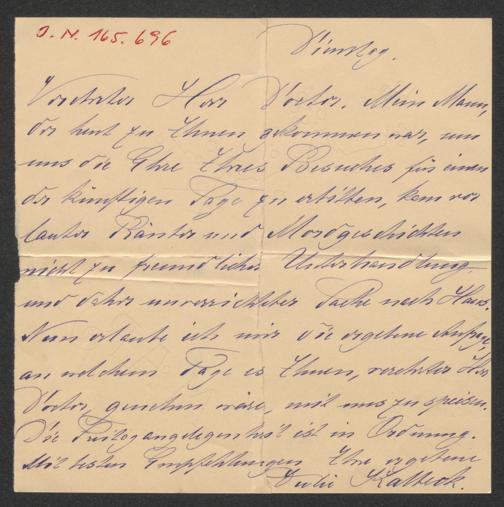 I. N. 165.696
Dienstag.
Verehrter Herr Doctor. Mein Mann,
der heut zu Ihnen gekommen war, um
uns die Ehre Ihres Besuches für einen
der künftigen Tage zu erbitten, kam vor
lauter Räuber und Mordgeschichten
nicht zu freundlicher Unterhandlung
und kehrte unverrichteter Sache nach Haus.
Nun erlaube ich mir die ergebene Anfrage,
an welchem Tage es Ihnen, verehrter Herr
Doctor, genehm wäre, mit uns zu speisen.
Die angelegenheit ist in Ordnung.
Mit besten Empfehlungen Ihre ergebene
Julie Kalbeck.